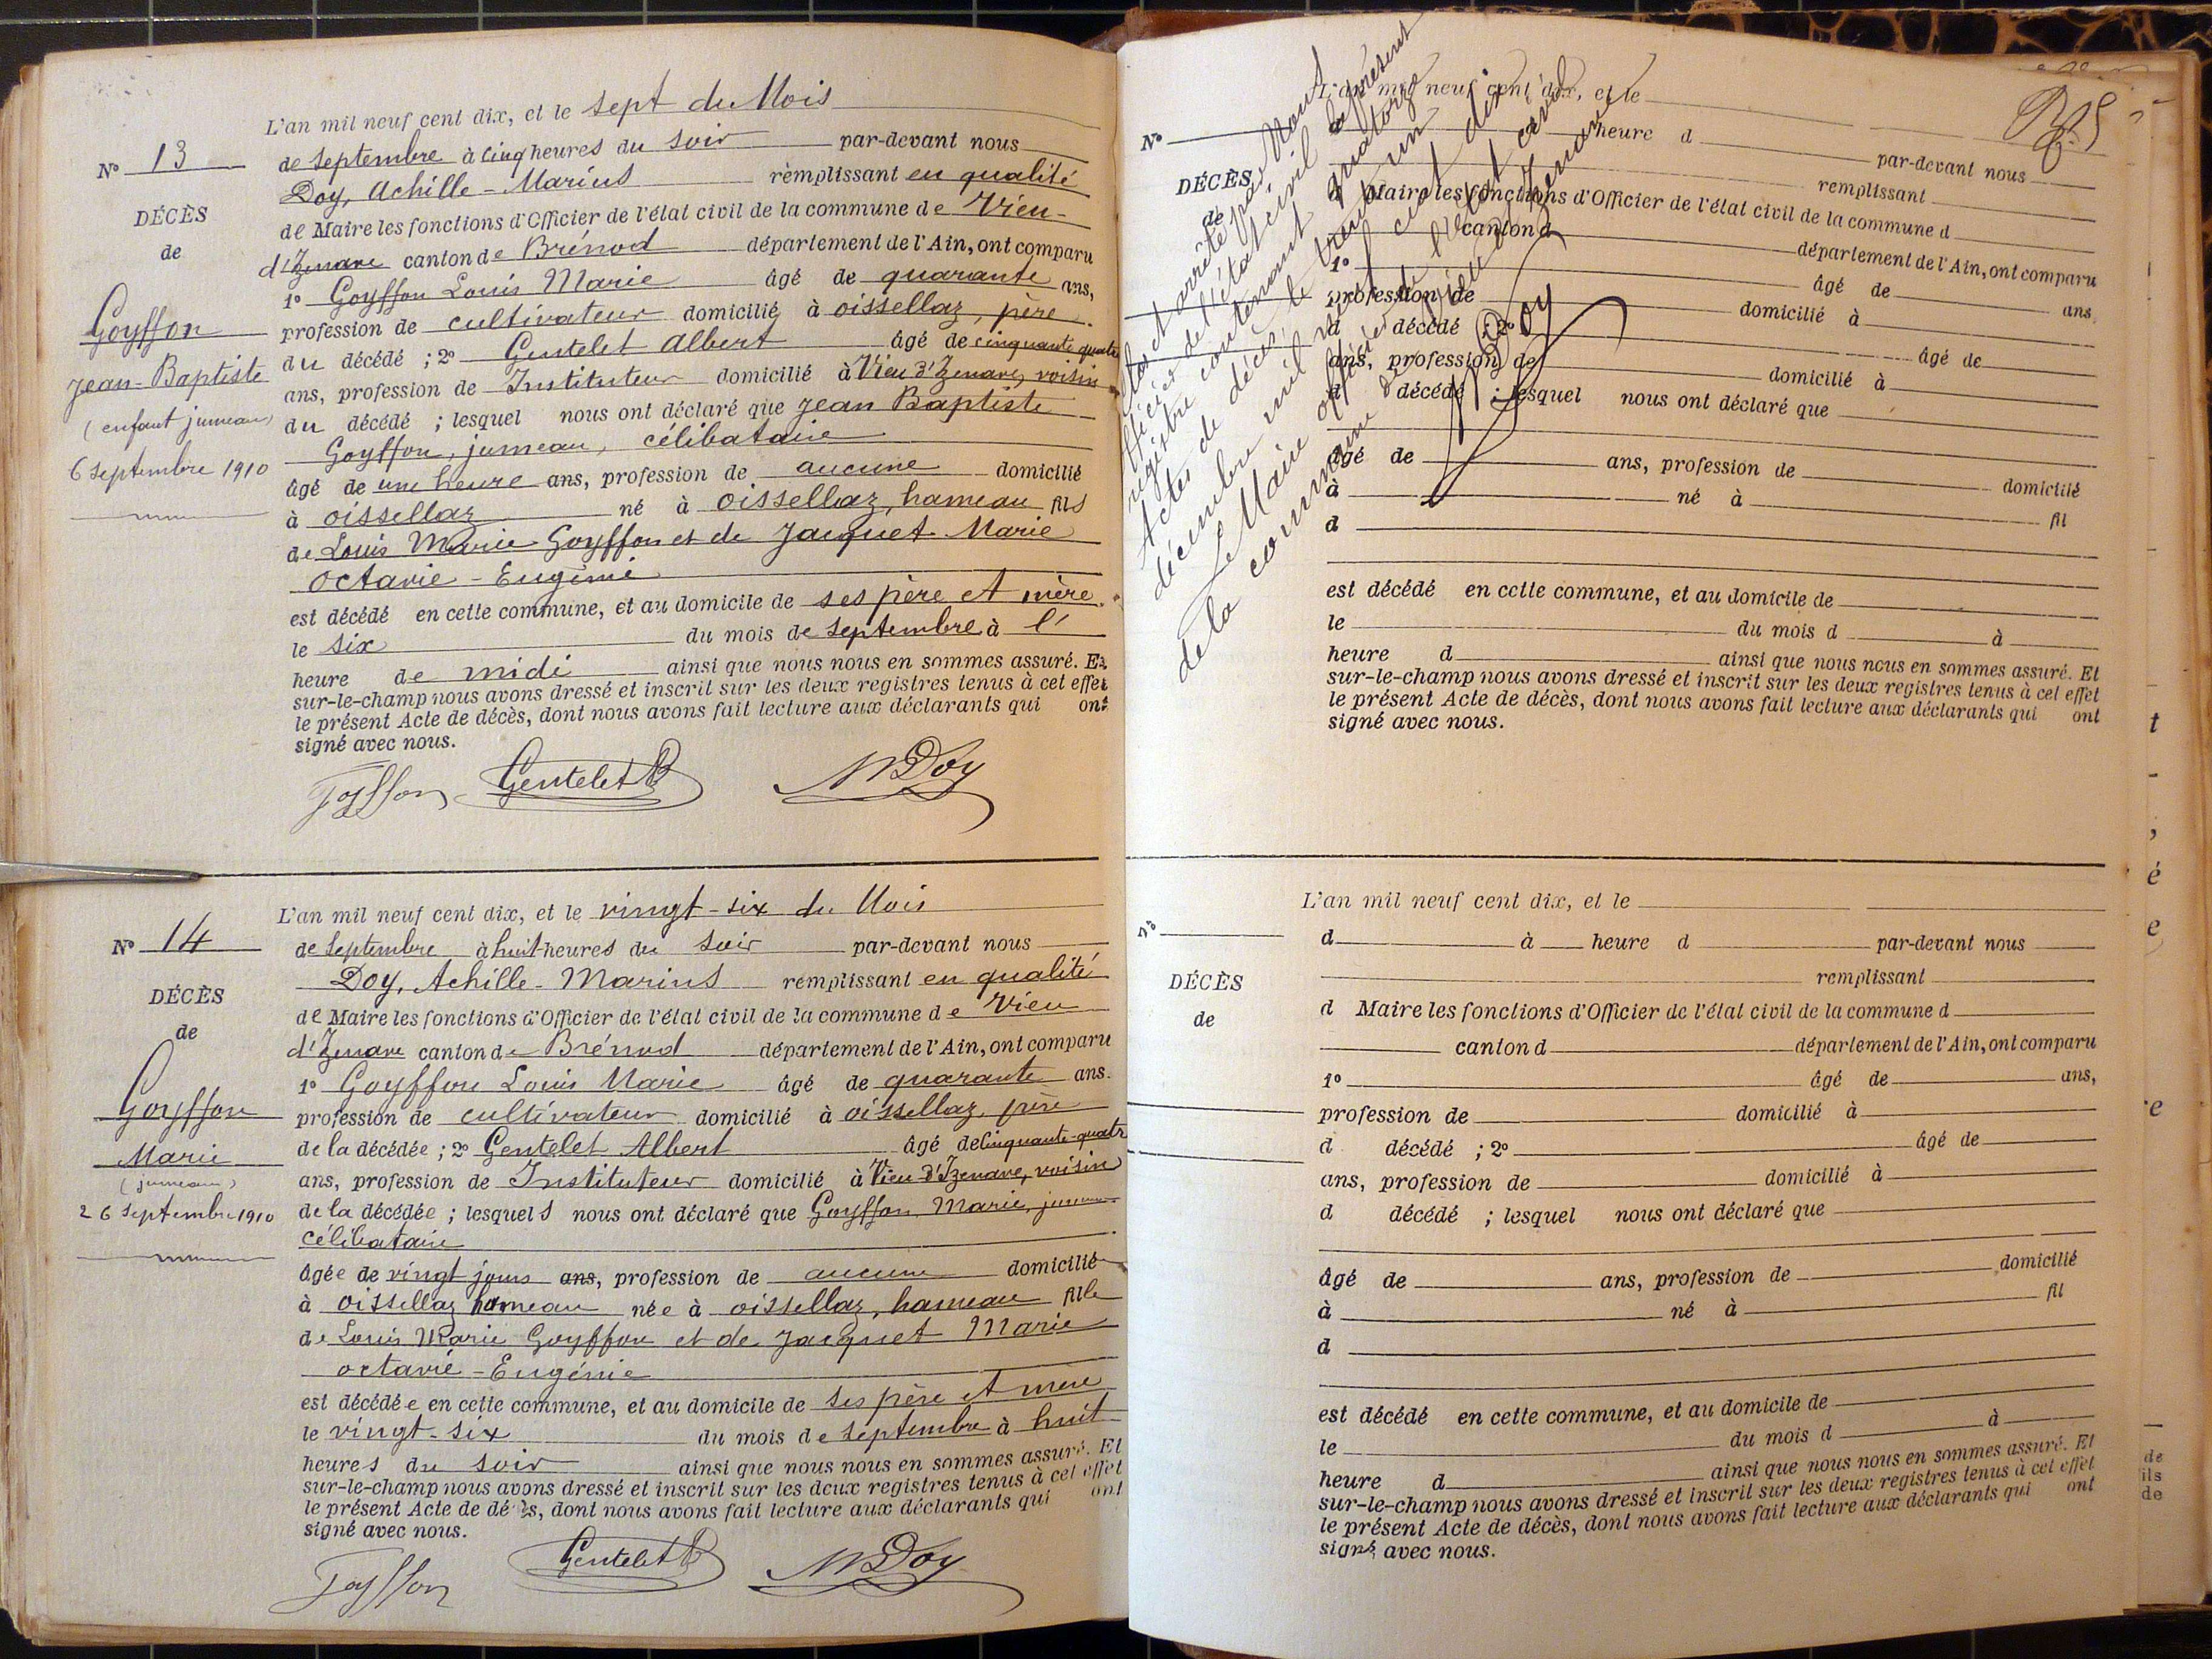 L'an mil neuf cent dix, et le sept du Mois
N° 13
de Septembre à cinq heures du soir par-devant nous
Doy, Achille-Marius remplissant en qualité
DÉCÈS
de Maire les fonctions d'Officier de l'état civil de la commune de Vieu-
de
d'Izenave canton de Brénod département de l'Ain, ont comparu
1° Goyffon Louis Marie âgé de quarante ans,
Goyffon
profession de cultivateur domicilié à oissellaz, père
Jean-Baptiste
du décédé ; 2° Gentelet Albert âgé de cinquante quatre
(enfant jumeau)
ans, profession de Instituteur domicilié à Vieu d'Izenave, voisin
du décédé ; lesquel nous ont déclaré que Jean Baptiste
6 Septembre 1910
Goyffon, jumeau, célibataire
âgé de une heure ans, profession de aucune domicilié
à oissellaz né à oissellaz, hameau fils
de Louis Marie Goyffon et de Jacquet Marie
octavie-Eugénie
est décédé en cette commune, et au domicile de ses père et mère
le six du mois de Septembre à l'
heure de midi ainsi que nous nous en sommes assuré. Et
sur-le-champ nous avons dressé et inscrit sur les deux registres tenus à cet effet
le présent Acte de décès, dont nous avons fait lecture aux déclarants qui ont
signé avec nous.
Goyffon Gentelet A Doy
L'an mil neuf cent dix, et le vingt-six du Mois
N° 14
de Septembre à huit heures du soir par-devant nous
Doy, Achille-Marius remplissant en qualité
DÉCÈS
de Maire les fonctions d'Officier de l'état civil de la commune de Vieu
de
d'Izenave canton de Brénod département de l'Ain, ont comparu
1° Goyffon Louis Marie âgé de quarante ans.
Goyffon
profession de cultivateur domicilié à oissellaz, père
Marie
de la décédée ; 2° Gentelet Albert âgé de cinquante-quatre
(jumeau)
ans, profession de Instituteur domicilié à Vieu d'Izenave, voisin
26 Septembre 1910
de la décédée ; lesquels nous ont déclaré que Goyffon Marie, jumeau
célibataire
âgée de vingt jours ans, profession de aucune domicilié
à oissellaz hameau née à oissellaz, hameau fille
de Louis Marie Goyffon et de Jacquet Marie
octavie-Eugénie
est décédée en cette commune, et au domicile de ses père et mère
le vingt-six du mois de Septembre à huit
heures du soir ainsi que nous nous en sommes assuré. Et
sur-le-champ nous avons dressé et inscrit sur les deux registres tenus à cet effet
le présent Acte de décès, dont nous avons fait lecture aux déclarants qui ont
signé avec nous.
Goyffon Gentelet A Doy
Clos et arrêté par Nous
officier de l'état civil le présent
registre contenant quatorze
Actes de décès, le trente un
décembre mil neuf cent dix
Le Maire officier de l'état civil
de la commune de Vieu d'Izenave
Doy
L'an mil neuf cent dix, et le
N° heure d par-devant nous
DÉCÈS remplissant
de
d Maire les fonctions d'Officier de l'état civil de la commune d
canton d département de l'Ain, ont comparu
1° âgé de ans,
profession de domicilié à
d décédé ; 2° âgé de
ans, profession de domicilié à
d décédé ; lesquel nous ont déclaré que
âgé de ans, profession de domicilié
à né à fil
d
est décédé en cette commune, et au domicile de
le du mois d à
heure d ainsi que nous nous en sommes assuré. Et
sur-le-champ nous avons dressé et inscrit sur les deux registres tenus à cet effet
le présent Acte de décès, dont nous avons fait lecture aux déclarants qui ont
signé avec nous.
L'an mil neuf cent dix, et le
N°
d à heure d par-devant nous
remplissant
DÉCÈS
d Maire les fonctions d'Officier de l'état civil de la commune d
de
canton d département de l'Ain, ont comparu
1° âgé de ans,
profession de domicilié à
d décédé ; 2° âgé de
ans, profession de domicilié à
d décédé ; lesquel nous ont déclaré que
âgé de ans, profession de domicilié
à né à fil
d
est décédé en cette commune, et au domicile de
le du mois d à
heure d ainsi que nous nous en sommes assuré. Et
sur-le-champ nous avons dressé et inscrit sur les deux registres tenus à cet effet
le présent Acte de décès, dont nous avons fait lecture aux déclarants qui ont
signé avec nous.